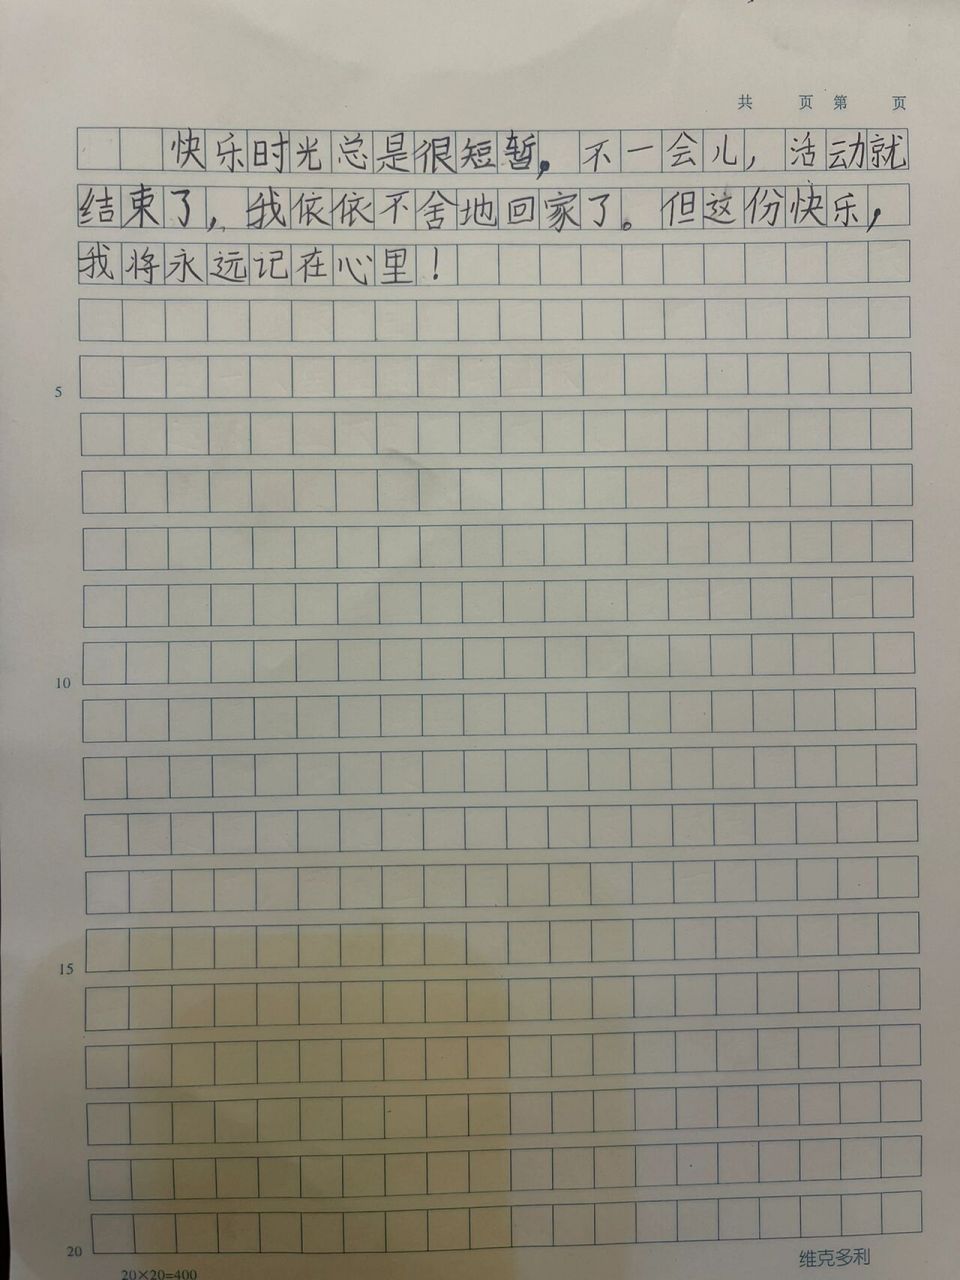 共 页 第 页
快乐时光总是很短暂，不一会儿，活动就
结束了，我依依不舍地回家了。但这份快乐，
我将永远记在心里！
5
10
15
20
20×20=400
维克多利